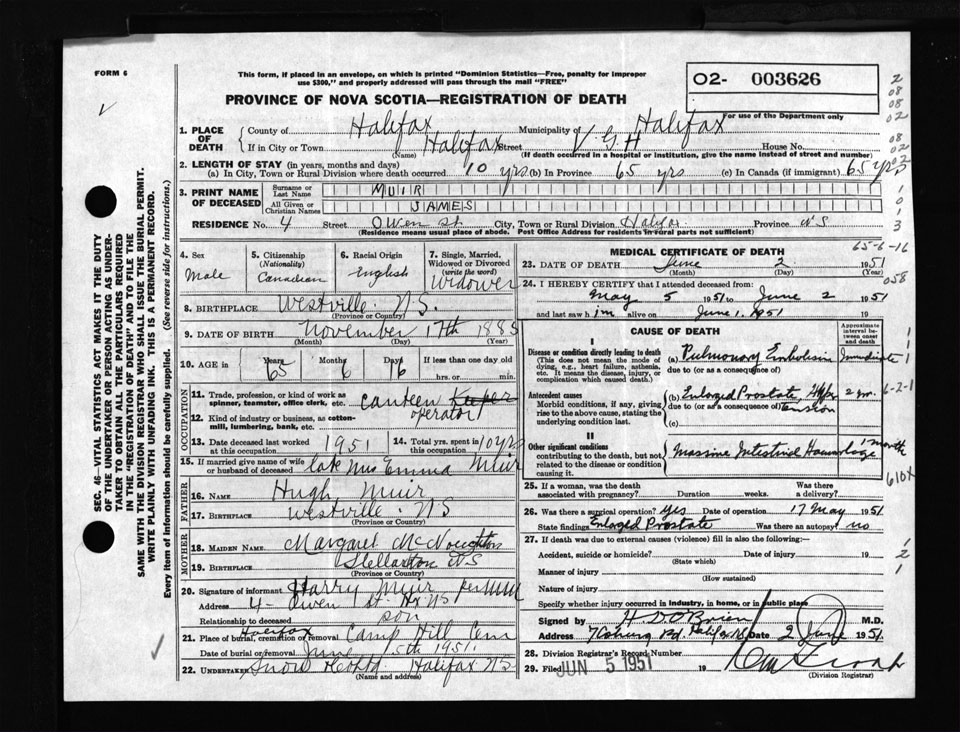 FORM 6
This form, if placed in an envelope, on which is printed "Dominion Statistics—Free, penalty for improper
use $300," and properly addressed will pass through the mail "FREE"
O2- 003626
For use of the Department only
PROVINCE OF NOVA SCOTIA—REGISTRATION OF DEATH
1. PLACE OF DEATH
County of Halifax Municipality of Halifax
If in City or Town Halifax Street V G H House No.
(Name) (If death occurred in a hospital or institution, give the name instead of street and number)
2. LENGTH OF STAY (in years, months and days)
(a) In City, Town or Rural Division where death occurred 10 yrs (b) In Province 65 yrs (c) In Canada (if immigrant) 65 yrs
3. PRINT NAME OF DECEASED
Surname or Last Name MUIR
All Given or Christian Names JAMES
RESIDENCE No. 4 Street Owen St. City, Town or Rural Division Halifax Province N S
(Residence means usual place of abode. Post Office Address for residents in rural parts not sufficient)
4. Sex Male
5. Citizenship (Nationality) Canadian
6. Racial Origin English
7. Single, Married, Widowed or Divorced (write the word) Widower
8. BIRTHPLACE Westville N.S.
(Province or Country)
9. DATE OF BIRTH November 17th 1885
(Month) (Day) (Year)
10. AGE in Years 65 Months 6 Days 16 If less than one day old hrs. or min.
OCCUPATION
11. Trade, profession, or kind of work as spinner, teamster, office clerk, etc. Canteen Keeper
operator
12. Kind of industry or business, as cotton-mill, lumbering, bank, etc.
13. Date deceased last worked at this occupation 1951
14. Total yrs. spent in this occupation 10 yrs
15. If married give name of wife or husband of deceased late Mrs Emma Muir
FATHER
16. NAME Hugh Muir
17. BIRTHPLACE Westville N S
(Province or Country)
MOTHER
18. MAIDEN NAME Margaret McNoughton
19. BIRTHPLACE Stellarton N S
(Province or Country)
20. Signature of informant Harry Muir per
Address 4 Owen st Hx NS
Relationship to deceased son
21. Place of burial, cremation or removal Halifax Camp Hill Cem
Date of burial or removal June 5th 1951.
22. Undertaker Snow Halifax NS
(Name and address)
MEDICAL CERTIFICATE OF DEATH
65-6-16
23. DATE OF DEATH June 2 1951
(Month) (Day) (Year)
058
24. I HEREBY CERTIFY that I attended deceased from:
May 5 1951 to June 2 1951
and last saw him alive on June 1. 1951 19
CAUSE OF DEATH
Approximate interval between onset and death
I
Disease or condition directly leading to death
(This does not mean the mode of dying, e.g., heart failure, asthenia, etc. It means the disease, injury, or complication which caused death.
(a) Pulmonary Embolism Immediate
due to (or as a consequence of)
Antecedent causes
Morbid conditions, if any, giving rise to the above cause, stating the underlying condition last.
(b) Enlarged Prostate Hyper 2 yrs. 6-2-1
due to (or as a consequence of) tension
(c)
II
Other significant conditions
contributing to the death, but not related to the disease or condition causing it.
Massive Intestinal Haemorrhage 1 month
610X
25. If a woman, was the death associated with pregnancy? Duration weeks. Was there a delivery?
26. Was there surgical operation? Yes Date of operation 17 May 1951
State findings Enlarged Prostate Was there an autopsy? no
27. If death was due to external causes (violence) fill in also the following:—
Accident, suicide or homicide? Date of injury 19
(State which)
Manner of injury
(How sustained)
Nature of injury
Specify whether injury occurred in industry, in home, or in public place
Signed by H. D. O'Brien M.D.
Address Coburg Rd. Halifax Date 2 June 1951
28. Division Registrar's Record Number
29. Filed JUN 5 1951 19
(Division Registrar)
SEC. 46—VITAL STATISTICS ACT MAKES IT THE DUTY
OF THE UNDERTAKER OR PERSON ACTING AS UNDER-
TAKER TO OBTAIN ALL THE PARTICULARS REQUIRED
IN THE "REGISTRATION OF DEATH" AND TO FILE THE
SAME WITH THE DIVISION REGISTRAR WHO SHALL ISSUE THE BURIAL PERMIT.
WRITE PLAINLY WITH UNFADING INK. THIS IS A PERMANENT RECORD.
Every item of information should be carefully supplied. (See reverse side for instructions.)
2
08
08
02
08
02
02
1
0
1
3
1
1
1
2
1